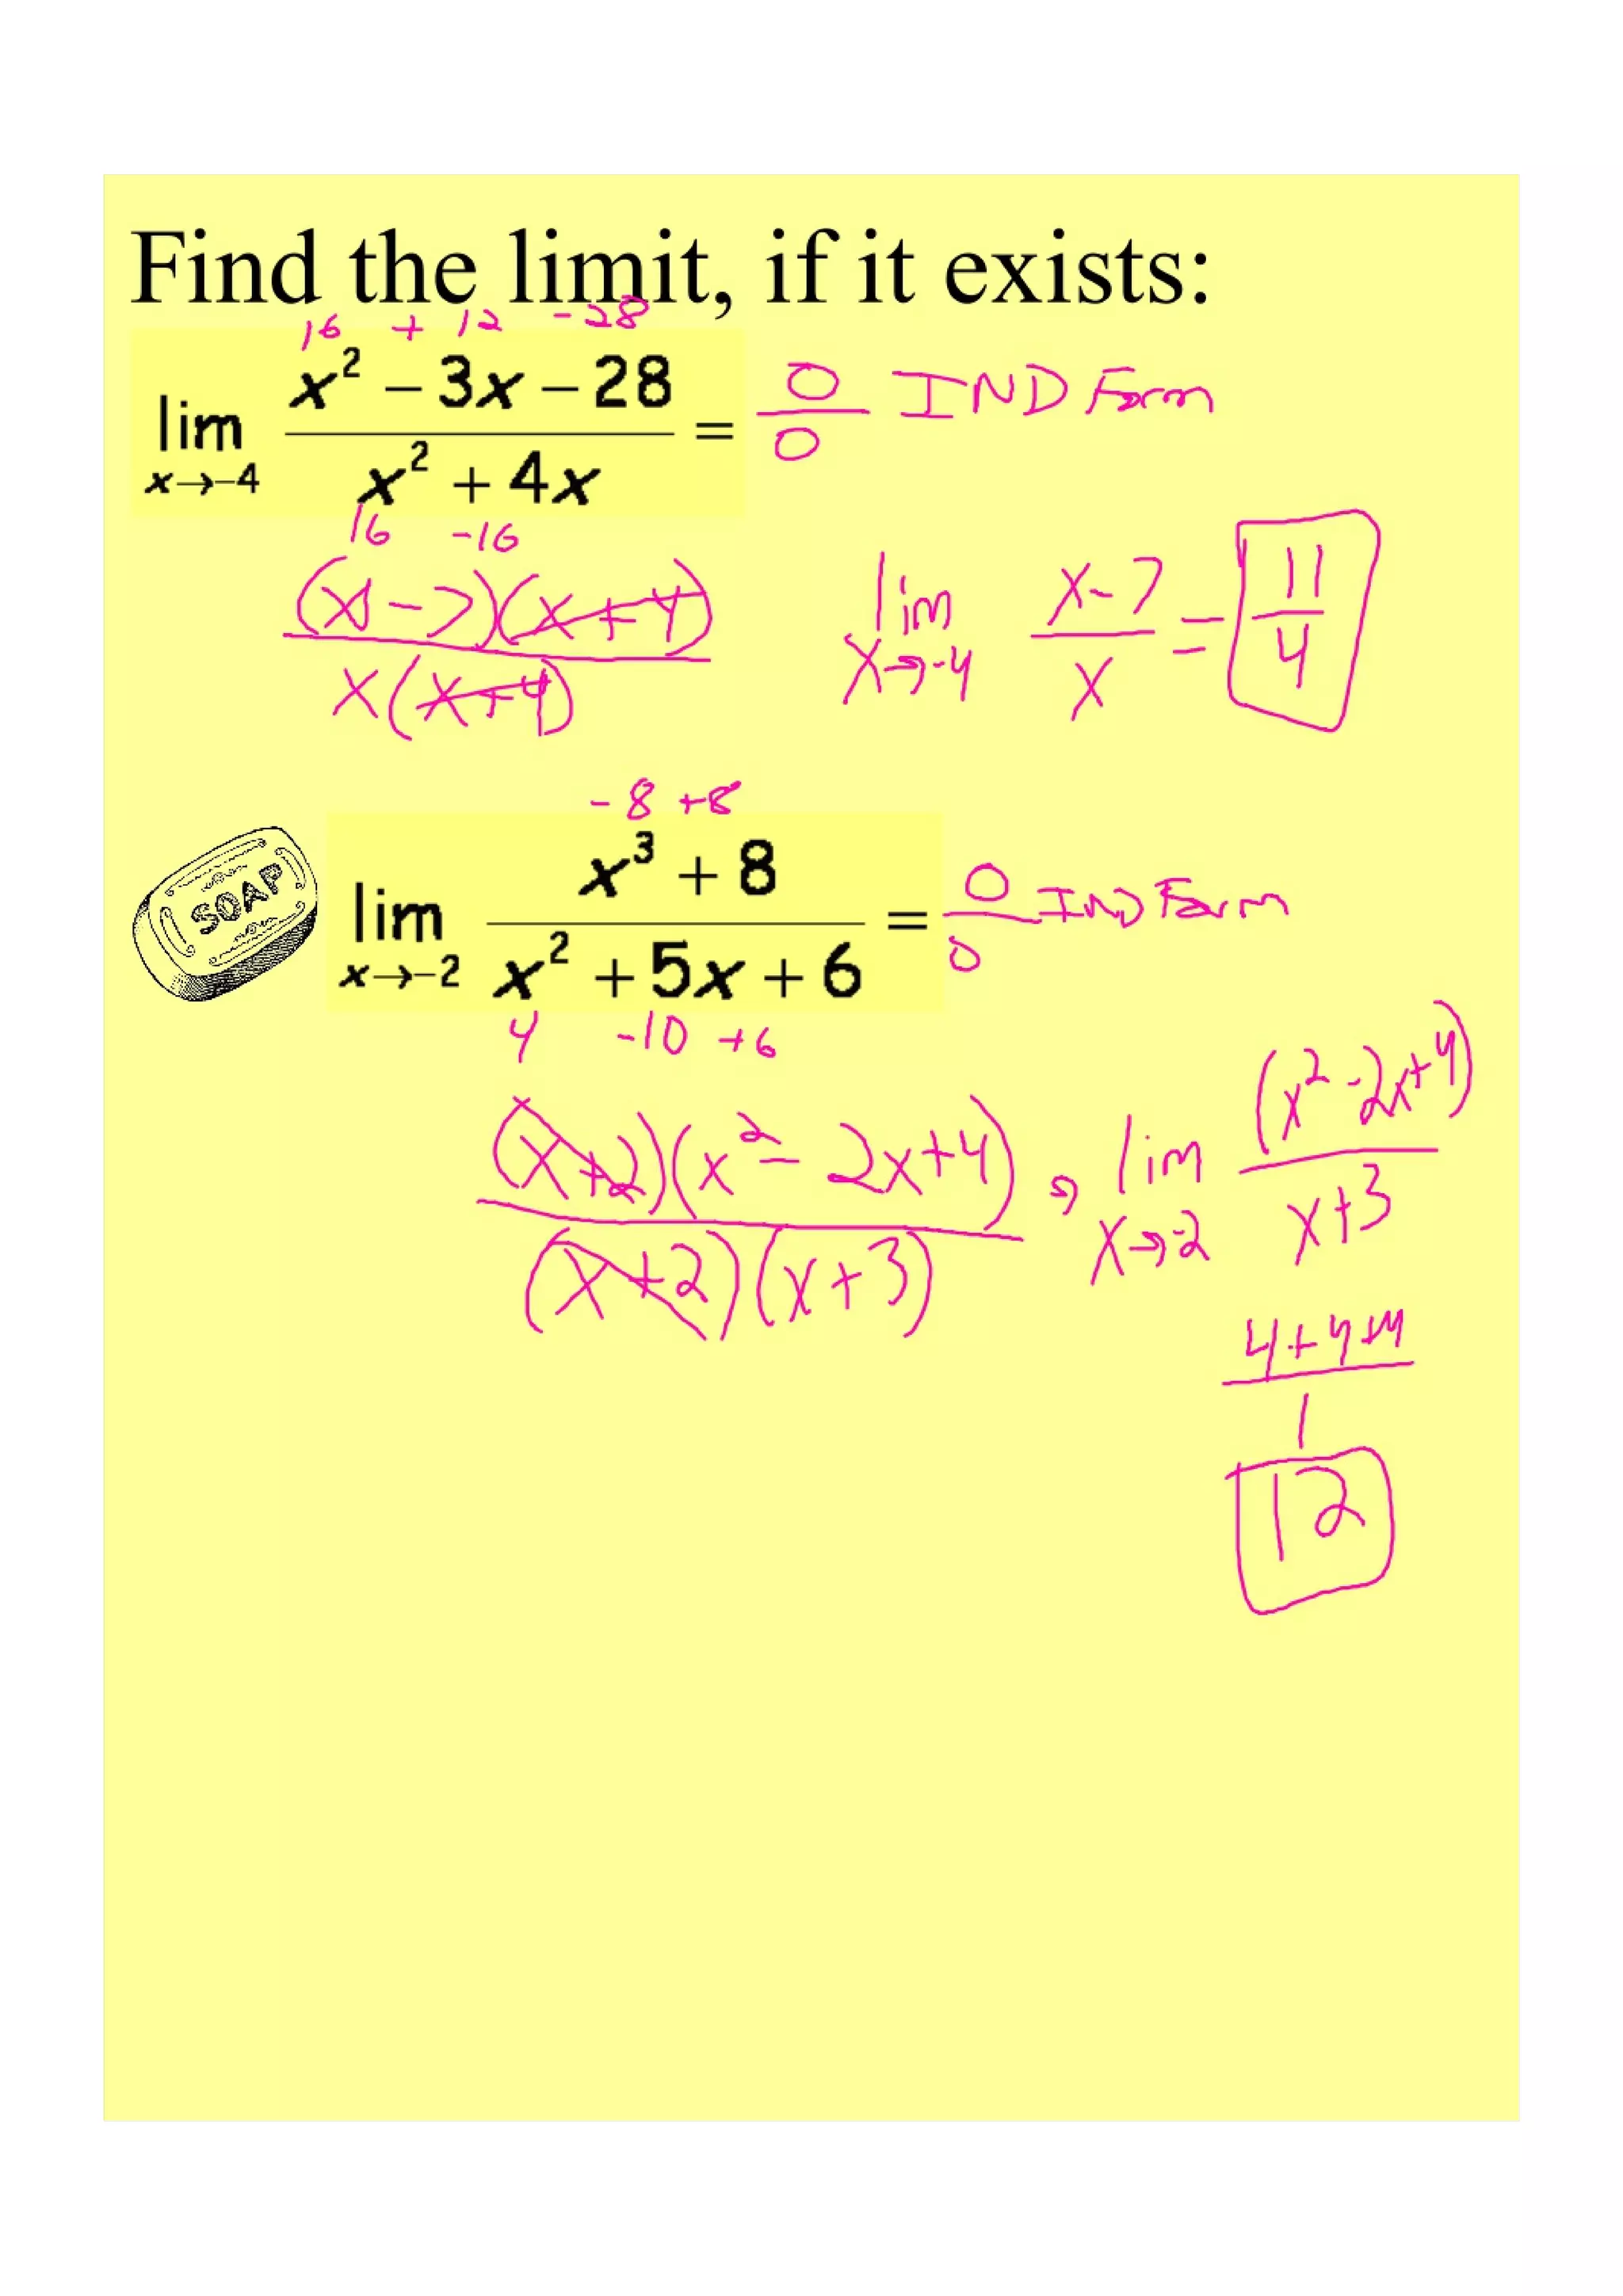 Find the limit, if it exists:
16 + 12 -28
lim x→-4 (x² - 3x - 28)/(x² + 4x) = 0/0 IND Form
16 -16
(x-7)(x+4)/x(x+4) lim x→-4 (x-7)/x = 11/4
-8 +8
SOAP lim x→-2 (x³ + 8)/(x² + 5x + 6) = 0/0 IND Form
4 -10 +6
(x+2)(x²-2x+4)/(x+2)(x+3) , lim x→-2 (x²-2x+4)/x+3
4+4+4/1
12